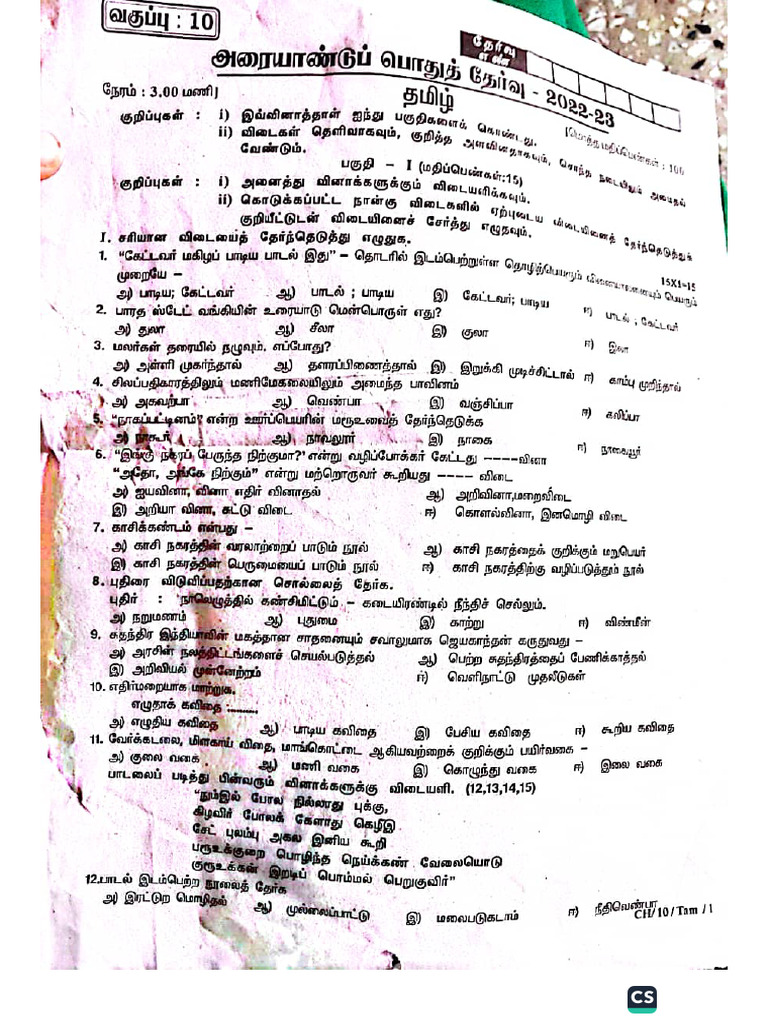 வகுப்பு : 10
தேர்வு எண்
அரையாண்டுப் பொதுத் தேர்வு - 2022-23
நேரம் : 3.00 மணி]
தமிழ்
[மொத்த மதிப்பெண்கள் : 100
குறிப்புகள் : i) இவ்வினாத்தாள் ஐந்து பகுதிகளைக் கொண்டது.
ii) விடைகள் தெளிவாகவும், குறித்த அளவினதாகவும், சொந்த நடையிலும் அமைதல் வேண்டும்.
பகுதி - I (மதிப்பெண்கள்:15)
குறிப்புகள் : i) அனைத்து வினாக்களுக்கும் விடையளிக்கவும்.
ii) கொடுக்கப்பட்ட நான்கு விடைகளில் ஏற்புடைய விடையினைத் தேர்ந்தெடுத்துக்
குறியீட்டுடன் விடையினைச் சேர்த்து எழுதவும்.
I. சரியான விடையைத் தேர்ந்தெடுத்து எழுதுக.
15X1=15
1. "கேட்டவர் மகிழப் பாடிய பாடல் இது" - தொடரில் இடம்பெற்றுள்ள தொழிற்பெயரும் வினையாலணையும் பெயரும்
முறையே -
அ) பாடிய; கேட்டவர் ஆ) பாடல் ; பாடிய இ) கேட்டவர்; பாடிய ஈ) பாடல் ; கேட்டவர்
2. பாரத ஸ்டேட் வங்கியின் உரையாடு மென்பொருள் எது?
அ) துலா ஆ) சீலா இ) குலா ஈ) இலா
3. மலர்கள் தரையில் நழுவும். எப்போது?
அ) அள்ளி முகர்ந்தால் ஆ) தளரப்பிணைத்தால் இ) இறுக்கி முடிச்சிட்டால் ஈ) காம்பு முறிந்தால்
4. சிலப்பதிகாரத்திலும் மணிமேகலையிலும் அமைந்த பாவினம்
அ) அகவற்பா ஆ) வெண்பா இ) வஞ்சிப்பா ஈ) கலிப்பா
5. "நாகப்பட்டினம்" என்ற ஊர்ப்பெயரின் மரூஉவைத் தேர்ந்தெடுக்க
அ) நாகூர் ஆ) நாவலூர் இ) நாகை ஈ) நாகையூர்
6. "இங்கு நகரப் பேருந்து நிற்குமா?' என்று வழிப்போக்கர் கேட்டது ----வினா
"அதோ, அங்கே நிற்கும்" என்று மற்றொருவர் கூறியது ---- விடை
அ) ஐயவினா, வினா எதிர் வினாதல் ஆ) அறிவினா,மறைவிடை
இ) அறியா வினா, சுட்டு விடை ஈ) கொளல்வினா, இனமொழி விடை
7. காசிக்கண்டம் என்பது -
அ) காசி நகரத்தின் வரலாற்றைப் பாடும் நூல் ஆ) காசி நகரத்தைக் குறிக்கும் மறுபெயர்
இ) காசி நகரத்தின் பெருமையைப் பாடும் நூல் ஈ) காசி நகரத்திற்கு வழிப்படுத்தும் நூல்
8. புதிரை விடுவிப்பதற்கான சொல்லைத் தேர்க.
புதிர் : 'நாலெழுத்தில் கண்சிமிட்டும் - கடையிரண்டில் நீந்திச் செல்லும்.
அ) நறுமணம் ஆ) புதுமை இ) காற்று ஈ) விண்மீன்
9. சுதந்திர இந்தியாவின் மகத்தான சாதனையும் சவாலுமாக ஜெயகாந்தன் கருதுவது -
அ) அரசின் நலத்திட்டங்களைச் செயல்படுத்தல் ஆ) பெற்ற சுதந்திரத்தைப் பேணிக்காத்தல்
இ) அறிவியல் முன்னேற்றம் ஈ) வெளிநாட்டு முதலீடுகள்
10. எதிர்மறையாக மாற்றுக.
எழுதாக் கவிதை :.........
அ) எழுதிய கவிதை ஆ) பாடிய கவிதை இ) பேசிய கவிதை ஈ) கூறிய கவிதை
11. வேர்க்கடலை, மிளகாய் விதை, மாங்கொட்டை ஆகியவற்றைக் குறிக்கும் பயிர்வகை -
அ) குலை வகை ஆ) மணி வகை இ) கொழுந்து வகை ஈ) இலை வகை
பாடலைப் படித்து பின்வரும் வினாக்களுக்கு விடையளி. (12,13,14,15)
"நும்இல் போல நில்லாது புக்கு,
கிழவிர் போலக் கேளாது கெழீஇ
சேட் புலம்பு அகல இனிய கூறி
பரூஉக்குறை பொழிந்த நெய்க்கண் வேலையொடு
குரூஉக்கண் இறடிப் பொம்மல் பெறுகுவிர்"
12.பாடல் இடம்பெற்ற நூலைத் தேர்க
அ) இரட்டுற மொழிதல் ஆ) முல்லைப்பாட்டு இ) மலைபடுகடாம் ஈ) நீதிவெண்பா
CH/10/Tam/1
CS